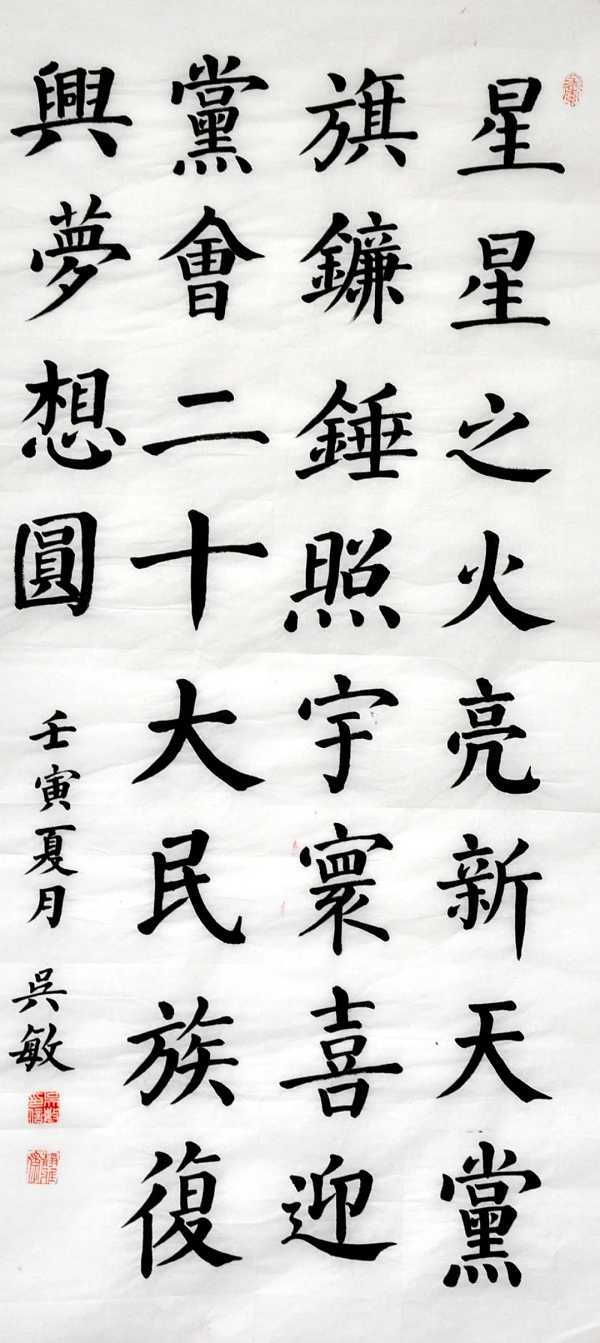 星星之火亮新天黨
旗鐮錘照宇寰喜迎
黨會二十大民族復
興夢想圓
壬寅夏月 吳敏